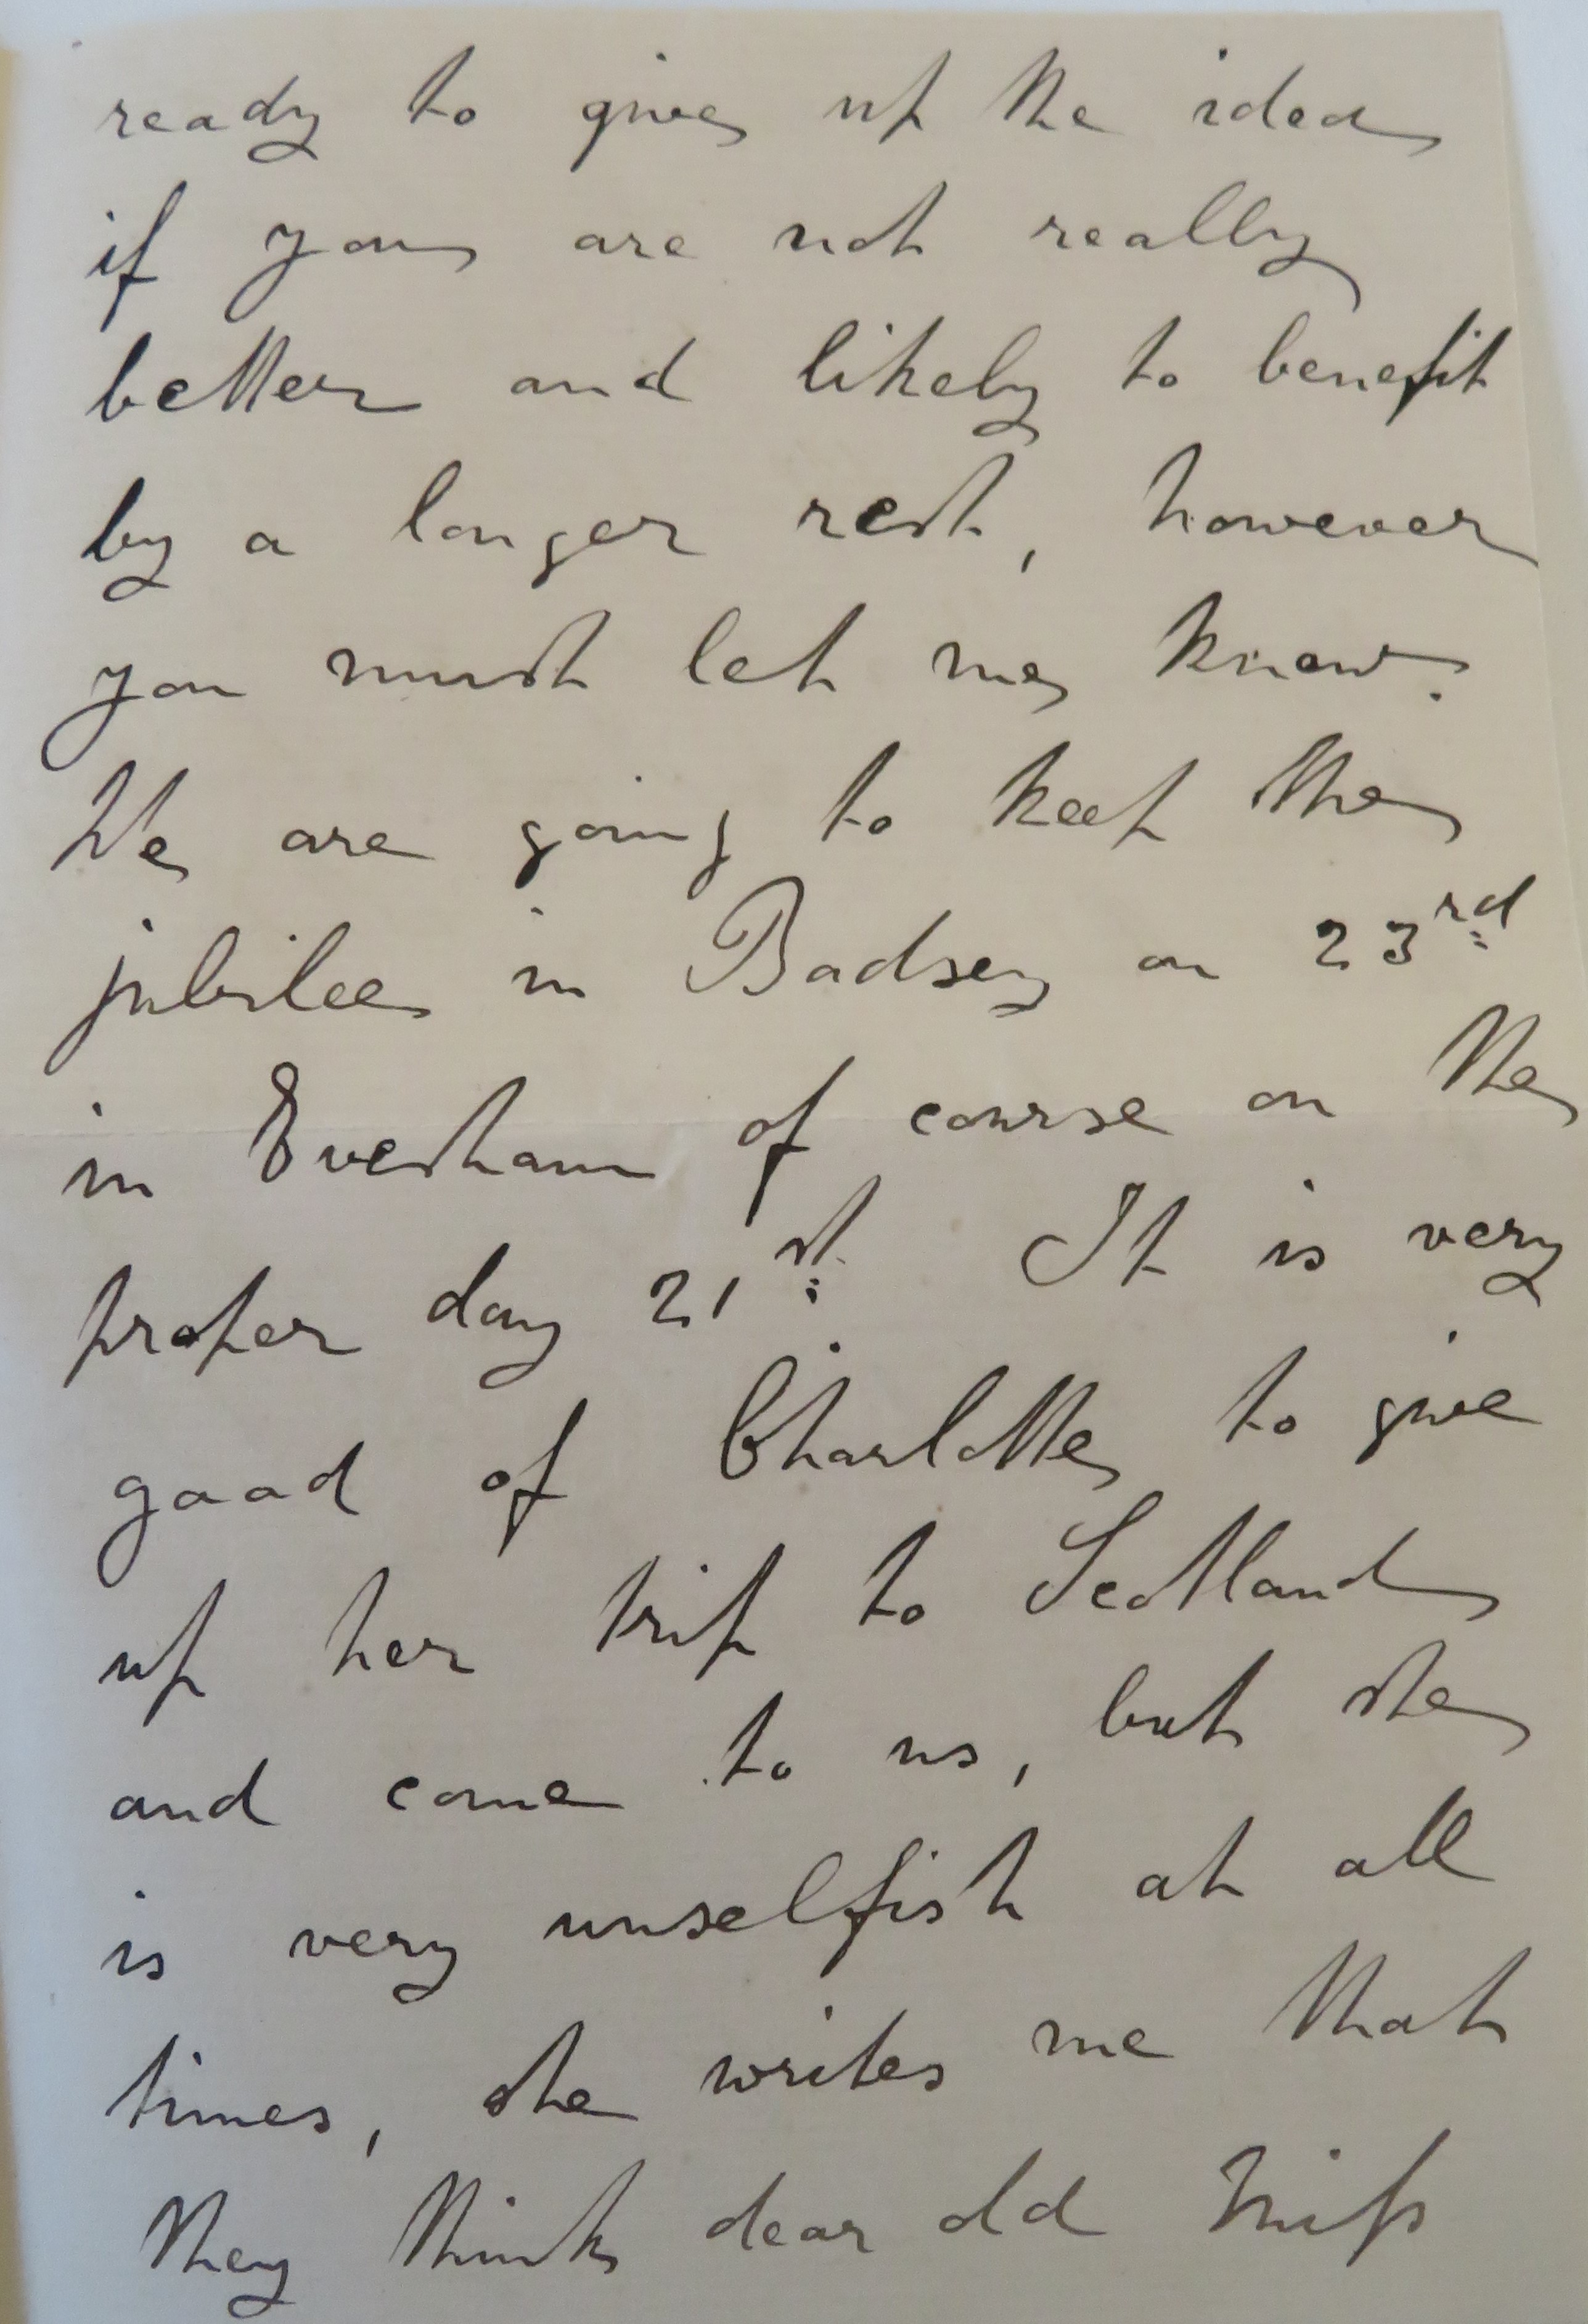 ready to give up the idea
if you are not really
better and likely to benefit
by a longer rest, however
you must let me know.
We are going to keep the
jubilee in Badsey on 23rd
in Evesham of course on the
proper day 21st. It is very
good of Charlotte to give
up her trip to Scotland
and come to us, but she
is very unselfish at all
times, she writes me that
they think dear old Miss